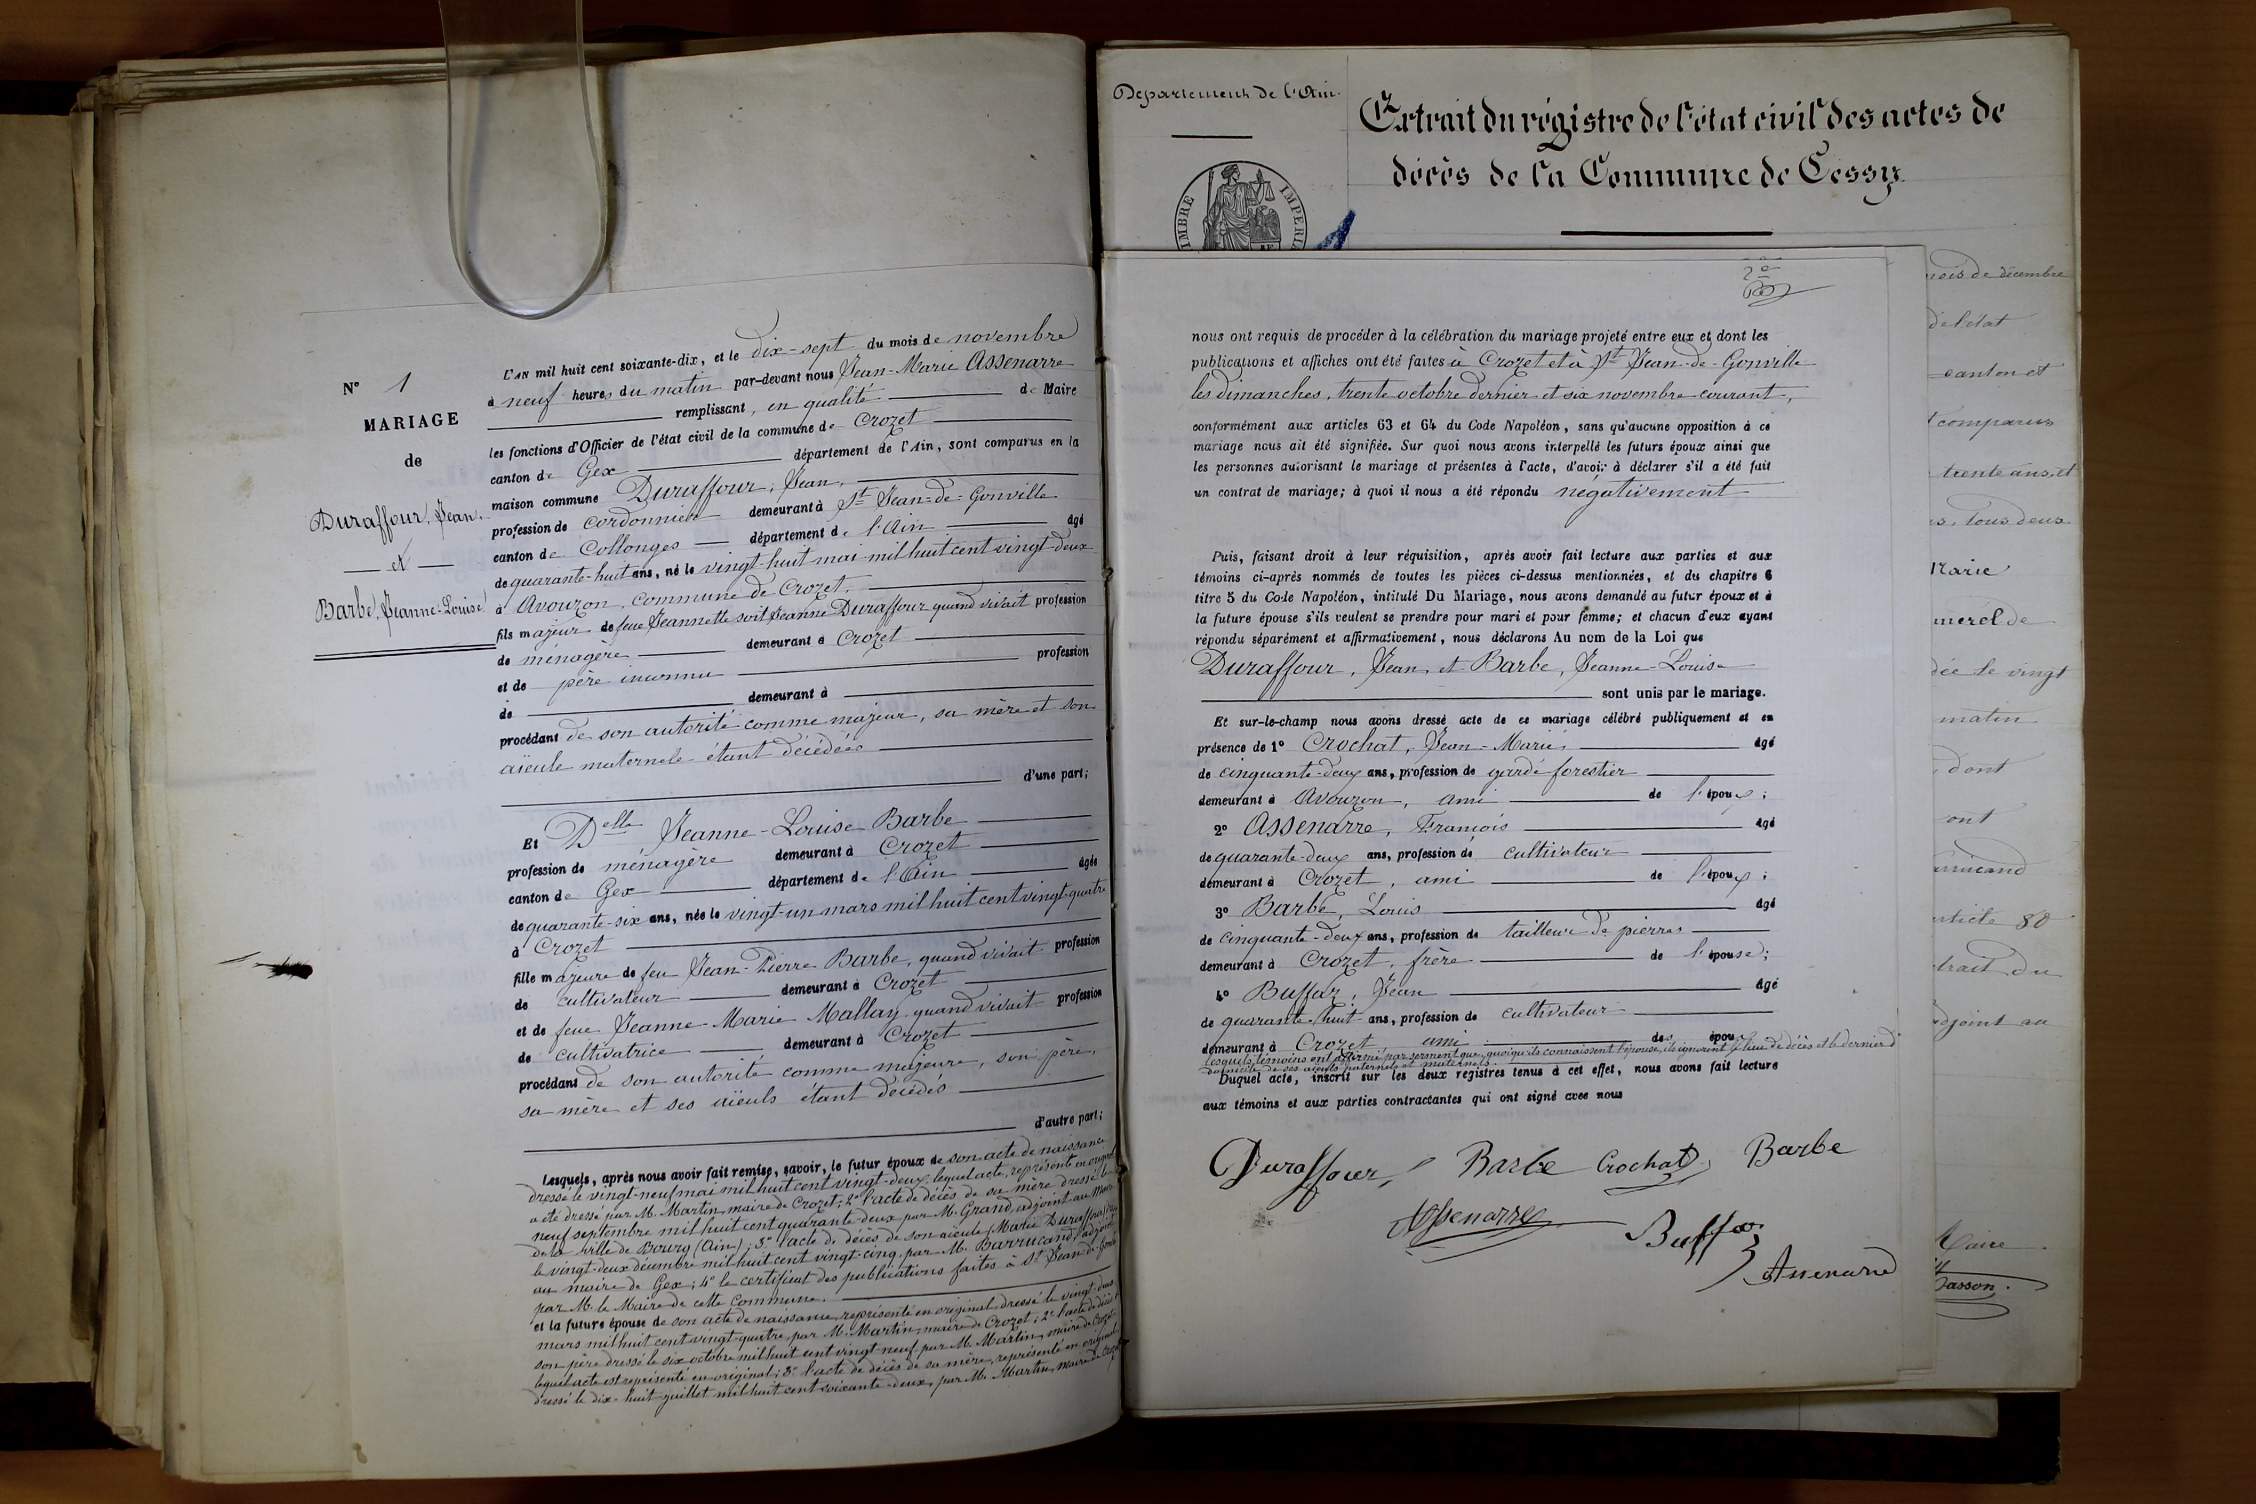 L'AN mil huit cent soixante-dix, et le dix-sept du mois de novembre
à neuf heures du matin par-devant nous Jean-Marie Assenarre
remplissant, en qualité de Maire
les fonctions d'Officier de l'état civil de la commune de Crozet
canton de Gex département de l'Ain, sont comparus en la
maison commune Duraffour, Jean,
profession de cordonnier demeurant à St Jean-de-Gonville
canton de Collonges département de l'Ain âgé
de quarante-huit ans, né le vingt-huit mai mil huit cent vingt-deux
à Avouzon, commune de Crozet,
fils majeur de feue Jeannette soit Jeanne Duraffour quand vivait profession
de ménagère demeurant à Crozet
et de père inconnu profession
de demeurant à
procédant de son autorité comme majeur, sa mère et son
aïeule maternele étant décédées
d'une part;
N° 1
MARIAGE
de
Duraffour, Jean.
et
Barbe, Jeanne-Louise
Et Delle Jeanne-Louise Barbe
profession de ménagère demeurant à Crozet
canton de Gex département de l'Ain âgée
de quarante-six ans, née le vingt-un mars mil huit cent vingt-quatre
à Crozet
fille majeure de feu Jean-Pierre Barbe, quand vivait profession
de cultivateur demeurant à Crozet
et de feue Jeanne Marie Mallay quand vivait profession
de cultivatrice demeurant à Crozet
procédant de son autorité comme majeure, son père,
sa mère et ses aïeuls étant décédés
d'autre part;
Lesquels, après nous avoir fait remise, savoir, le futur époux de son acte de naissance
dressé le vingt-neuf mai mil huit cent vingt-deux, lequel acte, représenté en original
a été dressé par M. Martin, maire de Crozet; 2° l'acte de décès de sa mère dressé le
neuf septembre mil huit cent quarante-deux par M. Grand, adjoint au Maire
de la ville de Bourg (Ain); 3° l'acte de décès de son aïeule (Marie Duraffour)
le vingt-deux décembre mil huit cent vingt-cinq, par M. Barrucand, adjoint
au maire de Gex; 4° le certificat des publications faites à St Jean-de-Gonville
par M. le Maire de cette Commune.
et la future épouse de son acte de naissance, représenté en original dressé le vingt-deux
mars mil huit cent vingt-quatre, par M. Martin, maire de Crozet; 2° l'acte de décès de
son père dressé le six octobre mil huit cent vingt-neuf par M. Martin, maire de Crozet
lequel acte est représenté en original; 3° l'acte de décès de sa mère, représenté en original
dressé le dix-huit juillet mil huit cent soixante-deux, par M. Martin, maire de Crozet
Departement de l'Ain.
Extrait du régistre de l'état civil des actes de
décès de la Commune de Cessy.
TIMBRE IMPERIAL
nous ont requis de procéder à la célébration du mariage projeté entre eux et dont les
publications et affiches ont été faites à Crozet et à St Jean-de-Gonville
les dimanches, trente octobre dernier et six novembre courant,
conformément aux articles 63 et 64 du Code Napoléon, sans qu'aucune opposition à ce
mariage nous ait été signifiée. Sur quoi nous avons interpellé les futurs époux ainsi que
les personnes autorisant le mariage et présentes à l'acte, d'avoir à déclarer s'il a été fait
un contrat de mariage; à quoi il nous a été répondu négativement
Puis, faisant droit à leur réquisition, après avoir fait lecture aux parties et aux
témoins ci-après nommés de toutes les pièces ci-dessus mentionnées, et du chapitre 6
titre 5 du Code Napoléon, intitulé Du Mariage, nous avons demandé au futur époux et à
la future épouse s'ils veulent se prendre pour mari et pour femme; et chacun d'eux ayant
répondu séparément et affirmativement, nous déclarons Au nom de la Loi que
Duraffour, Jean, et Barbe, Jeanne-Louise
sont unis par le mariage.
Et sur-le-champ nous avons dressé acte de ce mariage célébré publiquement et en
présence de 1° Crochat, Jean-Marie, âgé
de cinquante-deux ans, profession de garde forestier
demeurant à Avouzon, ami de l'époux;
2° Assenarre, François âgé
de quarante-deux ans, profession de cultivateur
demeurant à Crozet, ami de l'époux;
3° Barbe, Louis âgé
de cinquante-deux ans, profession de tailleur de pierres
demeurant à Crozet, frère de l'épouse;
4° Buffaz, Jean âgé
de quarante-huit ans, profession de cultivateur
demeurant à Crozet ami des époux
lesquels témoins ont affirmé par serment que, quoiqu'ils connaissent l'épouse, ils ignorent le lieu de décès et le dernier
domicile de ses aïeuls paternels et maternels.
Duquel acte, inscrit sur les deux registres tenus à cet effet, nous avons fait lecture
aux témoins et aux parties contractantes qui ont signé avec nous
Duraffour, Barbe Crochat Barbe
Assenarre Buffaz
Assenarre
mois de décembre
de l'état
canton et
comparus
trente ans, et
tous deux
Marie
de
le vingt
matin
dont
ont
article 80
adjoint au
Maire